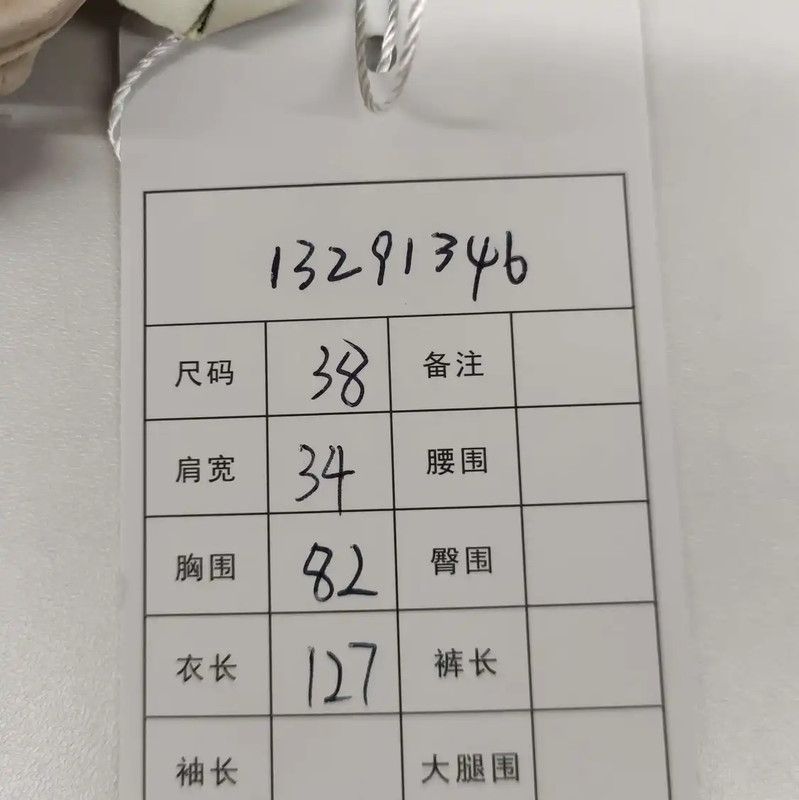 13291346
尺码 38 备注
肩宽 34 腰围
胸围 82 臀围
衣长 127 裤长
袖长 大腿围